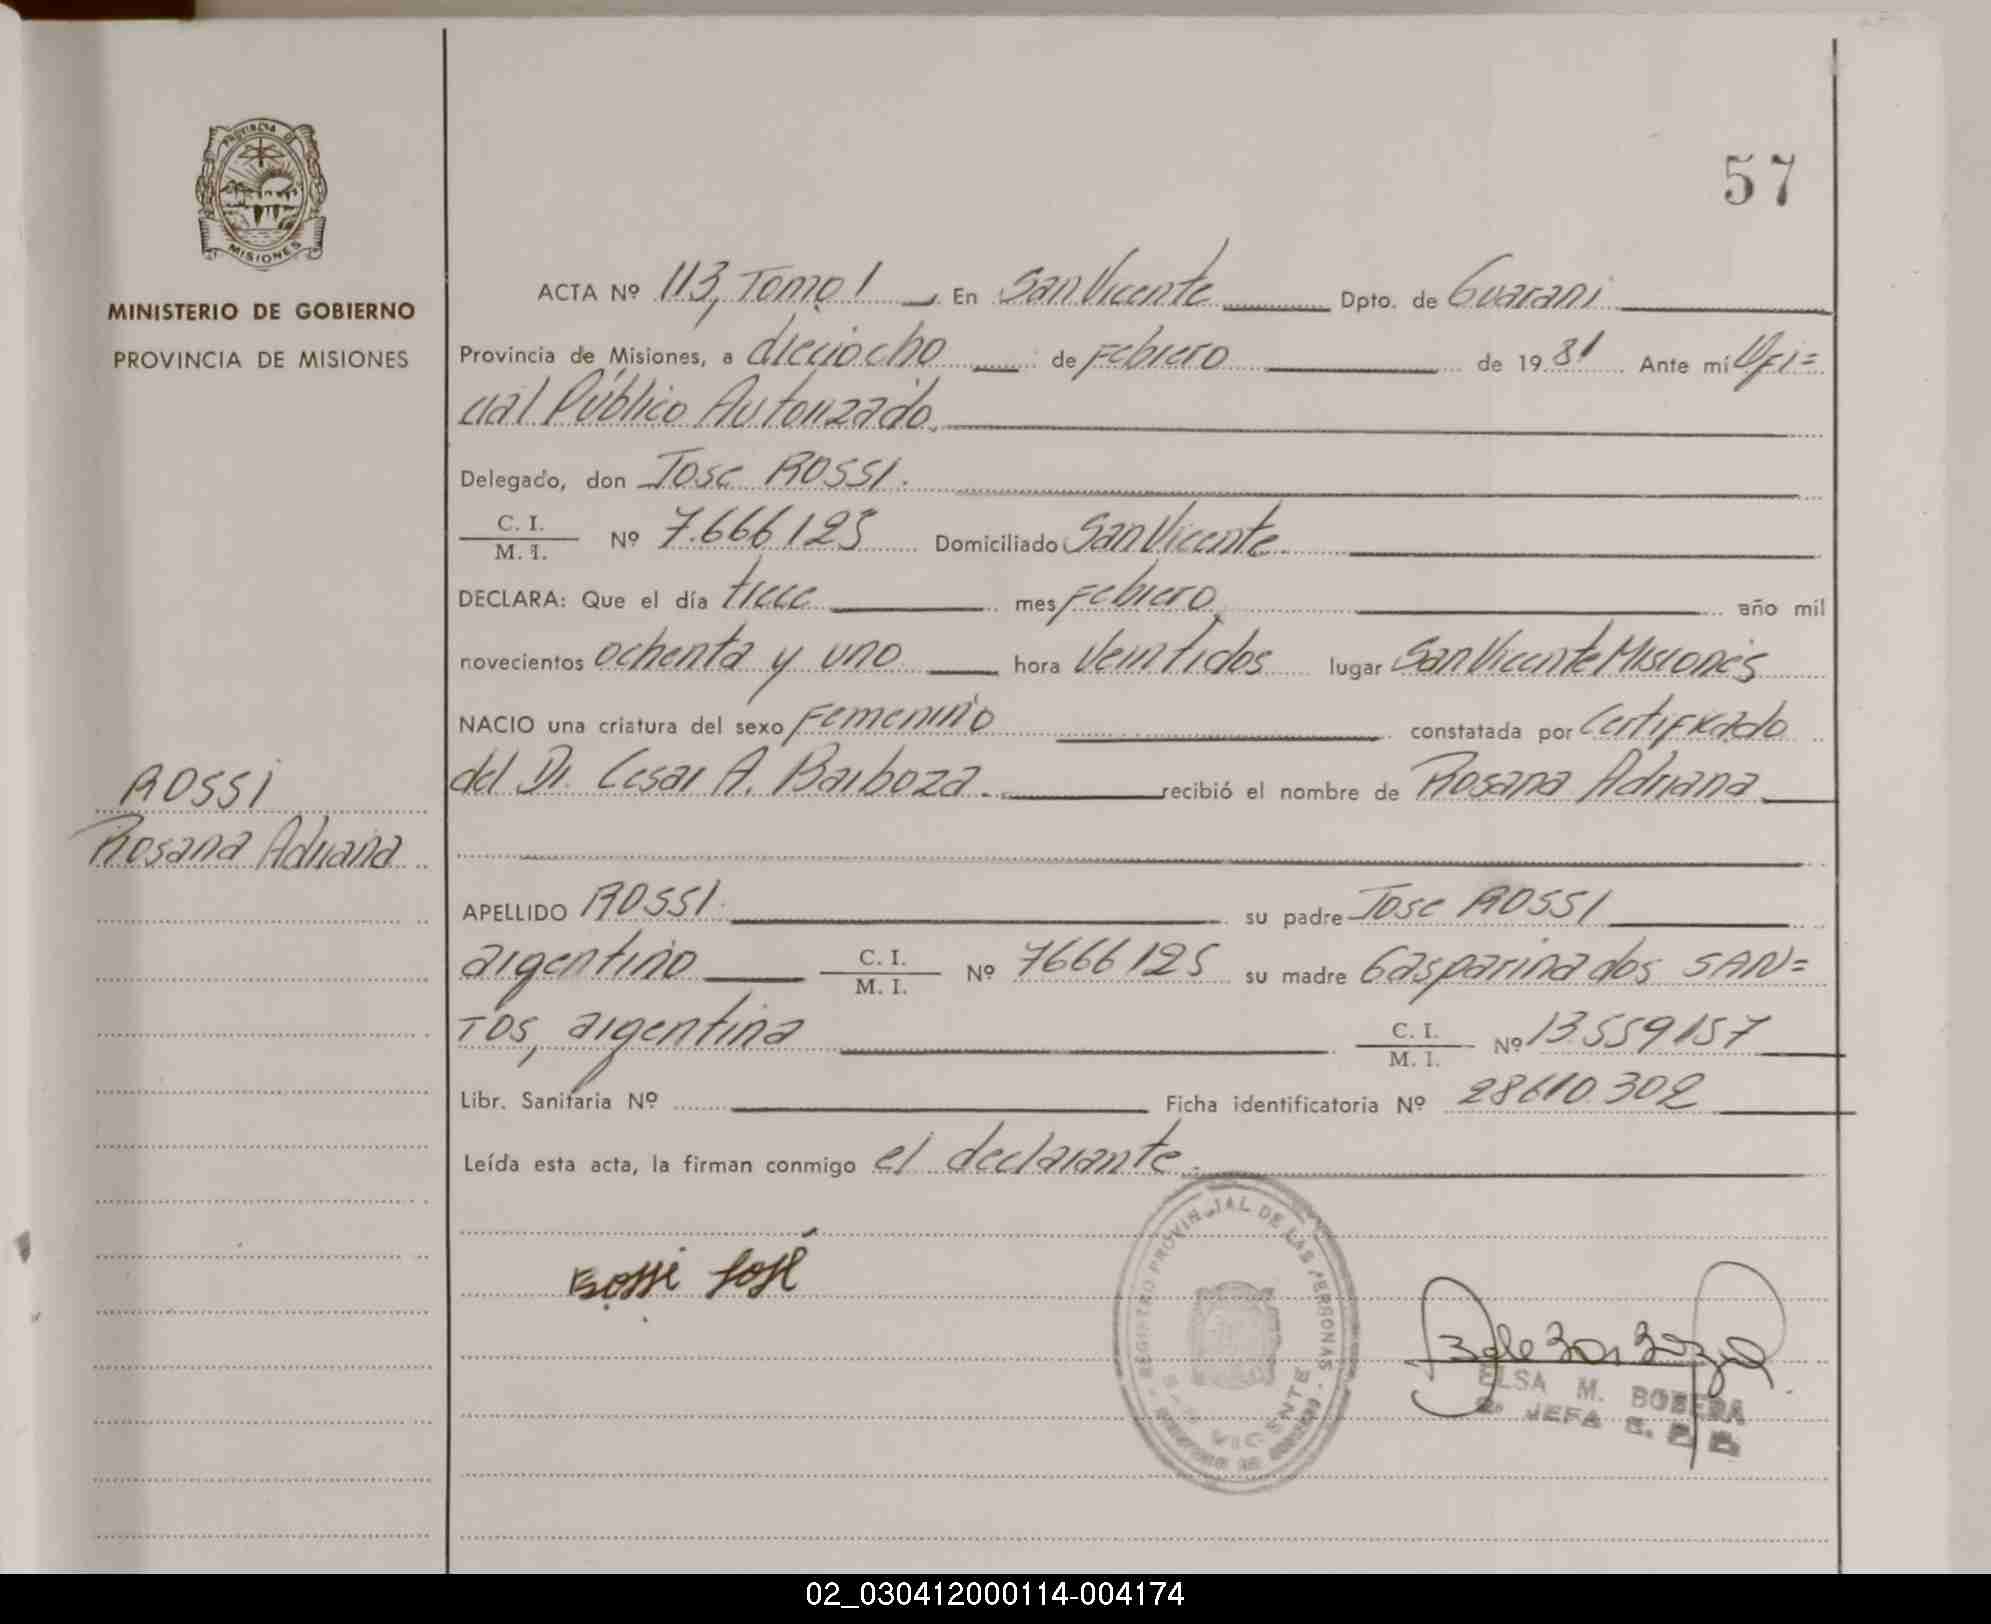 PROVINCIA DE
MISIONES
MINISTERIO DE GOBIERNO
PROVINCIA DE MISIONES
57
ACTA Nº 113, Tomo 1 En San Vicente Dpto. de Guarani
Provincia de Misiones, a dieciocho de Febrero de 1981 Ante mí Ofi=
cial Público Autorizado.
Delegado, don Jose ROSSI.
C. I.
M. I. Nº 7.666125 Domiciliado San Vicente.
DECLARA: Que el día trece mes Febrero año mil
novecientos ochenta y uno hora veintidos lugar San Vicente Misiones
NACIO una criatura del sexo Femenino constatada por Certificado
del Dr. Cesar A. Barboza. recibió el nombre de Rosana Adriana
ROSSI
Rosana Adriana
APELLIDO ROSSI. su padre Jose ROSSI
argentino C. I.
M. I. Nº 7666125 su madre Gasparina dos SAN=
TOS, argentina C. I.
M. I. Nº 13.559157
Libr. Sanitaria Nº Ficha identificatoria Nº 28610.302
Leída esta acta, la firman conmigo el declarante.
Rossi José
REGISTRO PROVINCIAL DE LAS PERSONAS
VICENTE
ELSA M.
2º JEFA
02_030412000114-004174